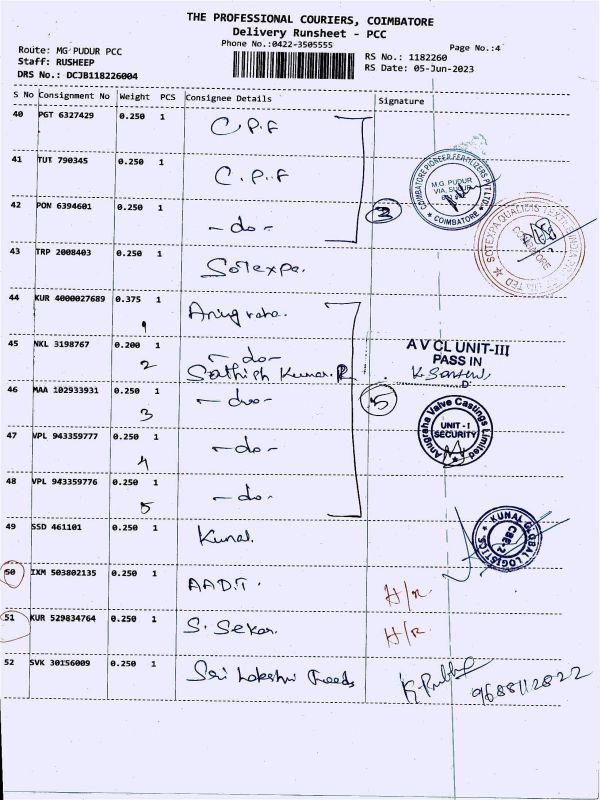 THE PROFESSIONAL COURIERS, COIMBATORE
Delivery Runsheet - PCC
Phone No.:0422-3505555
Page No.:4
Route: MG PUDUR PCC
Staff: RUSHEEP
DRS No.: DCJB118226004
RS No.: 1182260
RS Date: 05-Jun-2023
S No Consignment No Weight PCS Consignee Details Signature
40 PGT 6327429 0.250 1 C.P.F
41 TUT 790345 0.250 1 C.P.F
COIMBATORE PIONEER FERTILIZERS PVT LTD.
M.G. PUDUR
VIA. SULUR
* COIMBATORE *
42 PON 6394601 0.250 1 - do -
2
SOTEXPA QUALIDIS TEXTILE INDIA PRIVATE LIMITED
COIMBATORE
43 TRP 2008403 0.250 1 Sotexpa.
44 KUR 4000027689 0.375 1 Anugraha.
1
45 NKL 3198767 0.200 1 - do -
2 Sathish Kumar.R
A V CL UNIT-III
PASS IN
46 MAA 102933931 0.250 1 - do -
3
5
47 VPL 943359777 0.250 1 - do -
4
Anugraha Valve Castings Limited
UNIT - I
SECURITY
48 VPL 943359776 0.250 1 - do -
5
49 SSD 461101 0.250 1 Kunal.
KUNAL GLOBAL LOGISTICS
CBE-2
50 IXM 503802135 0.250 1 AADIT. H/R
51 KUR 529834764 0.250 1 S. Sekar. H/R
52 SVK 30156009 0.250 1 Sri Lakshmi Feeds K. Prabhu 9688112822